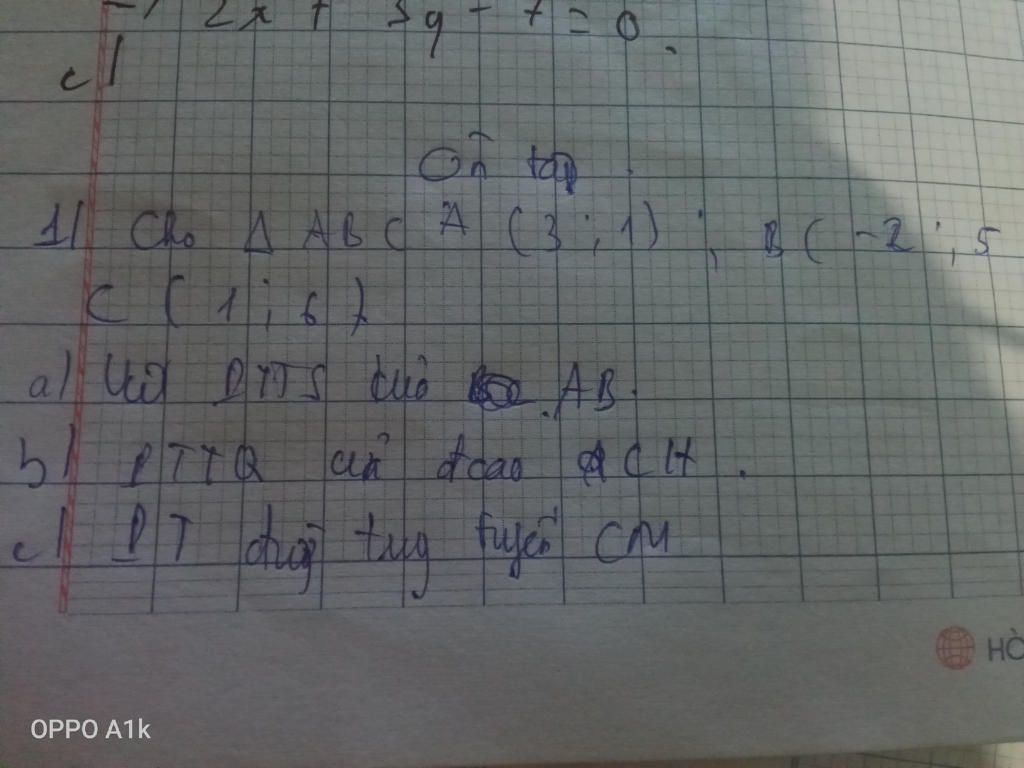 2x + 3y - 7 = 0.
c)
Ôn tập.
1) Cho Δ ABC A (3 ; 1) ; B ( -2 ; 5
C ( 1 ; 6 )
a) Viết PTTS AB.
b) PTTQ đcao CH.
c) PT đường tuyến CM
HÒ
OPPO A1k